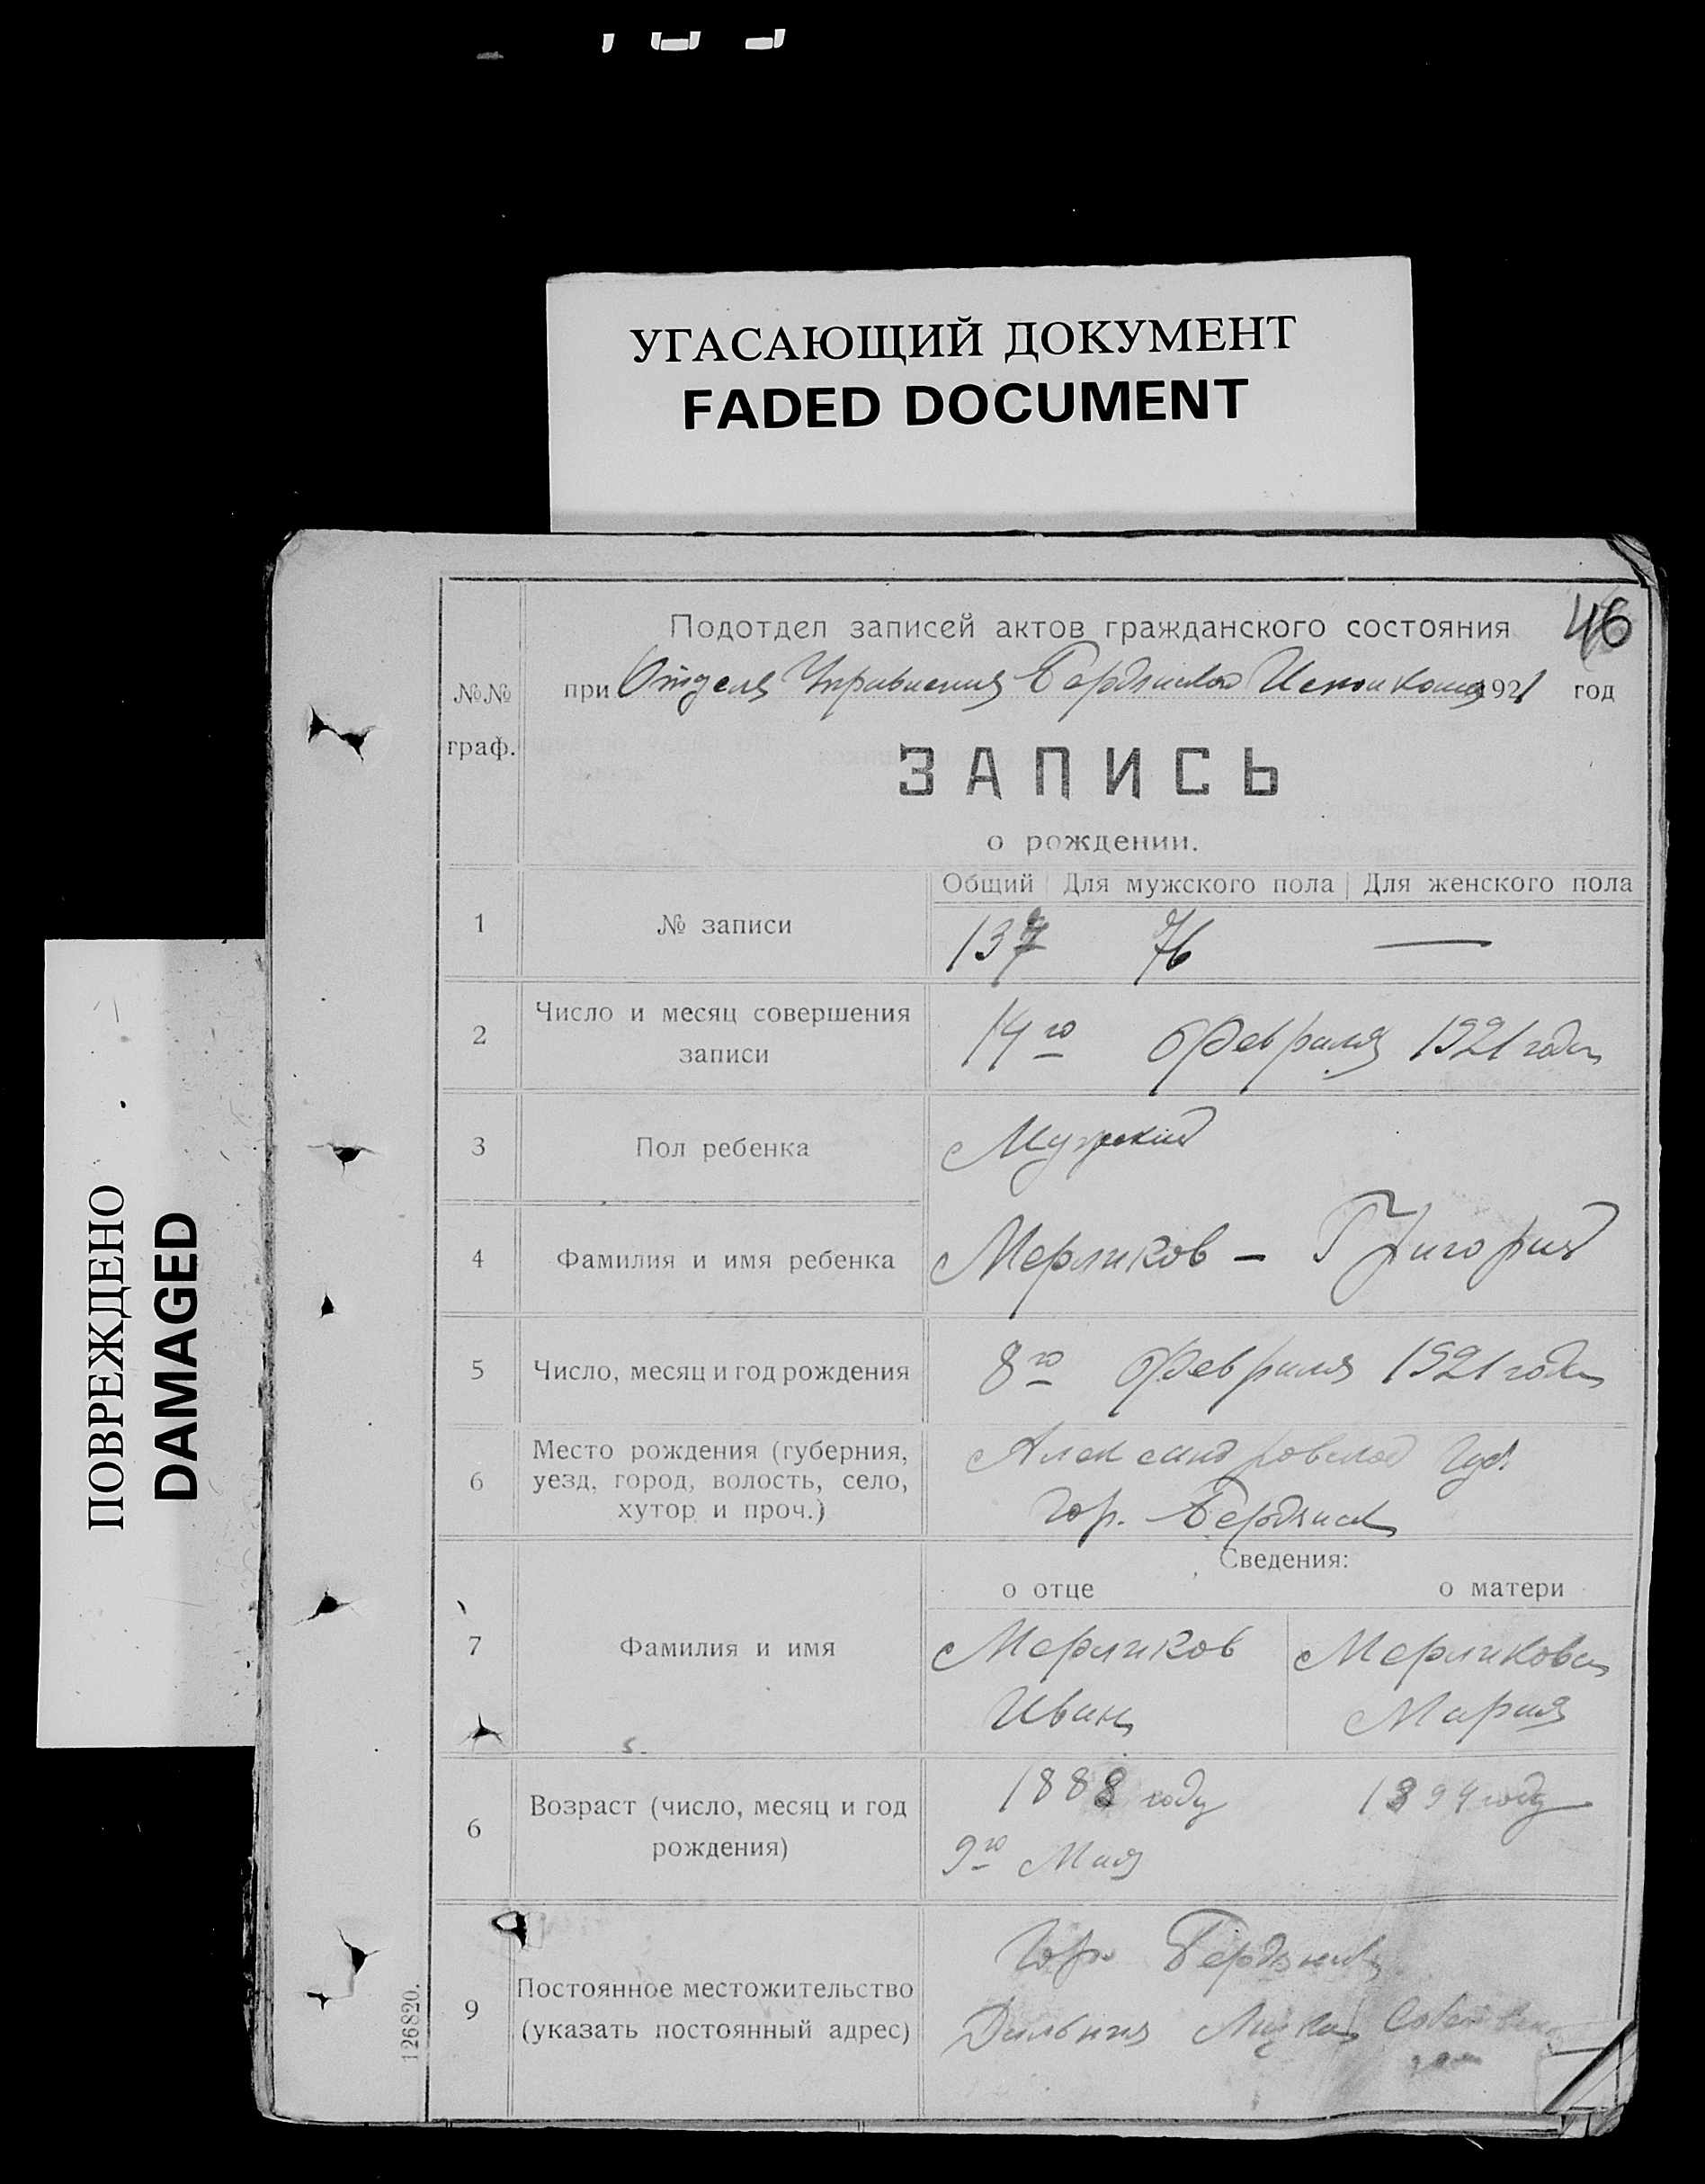 УГАСАЮЩИЙ ДОКУМЕНТ
FADED DOCUMENT
ПОВРЕЖДЕНО
DAMAGED
46
Подотдел записей актов гражданского состояния
при Отдела Управления Бердянского Исполкома 1921 год
№№ граф.
ЗАПИСЬ
о рождении.
Общий Для мужского пола Для женского пола
1 № записи 137 76 —
2 Число и месяц совершения записи 14го Февраля 1921 года
3 Пол ребенка Мужский
4 Фамилия и имя ребенка Мерликов – Григорий
5 Число, месяц и год рождения 8го Февраля 1921 года
6 Место рождения (губерния, Александровской Губ.
уезд, город, волость, село, гор. Бердянск
хутор и проч.)
Сведения:
о отце о матери
7 Фамилия и имя Мерликов Мерликова
Иван Мария
6 Возраст (число, месяц и год 1888 году 1894 году
рождения) 9го Мая
9 Постоянное местожительство Гор. Бердянск
(указать постоянный адрес) Дальняя
126820.